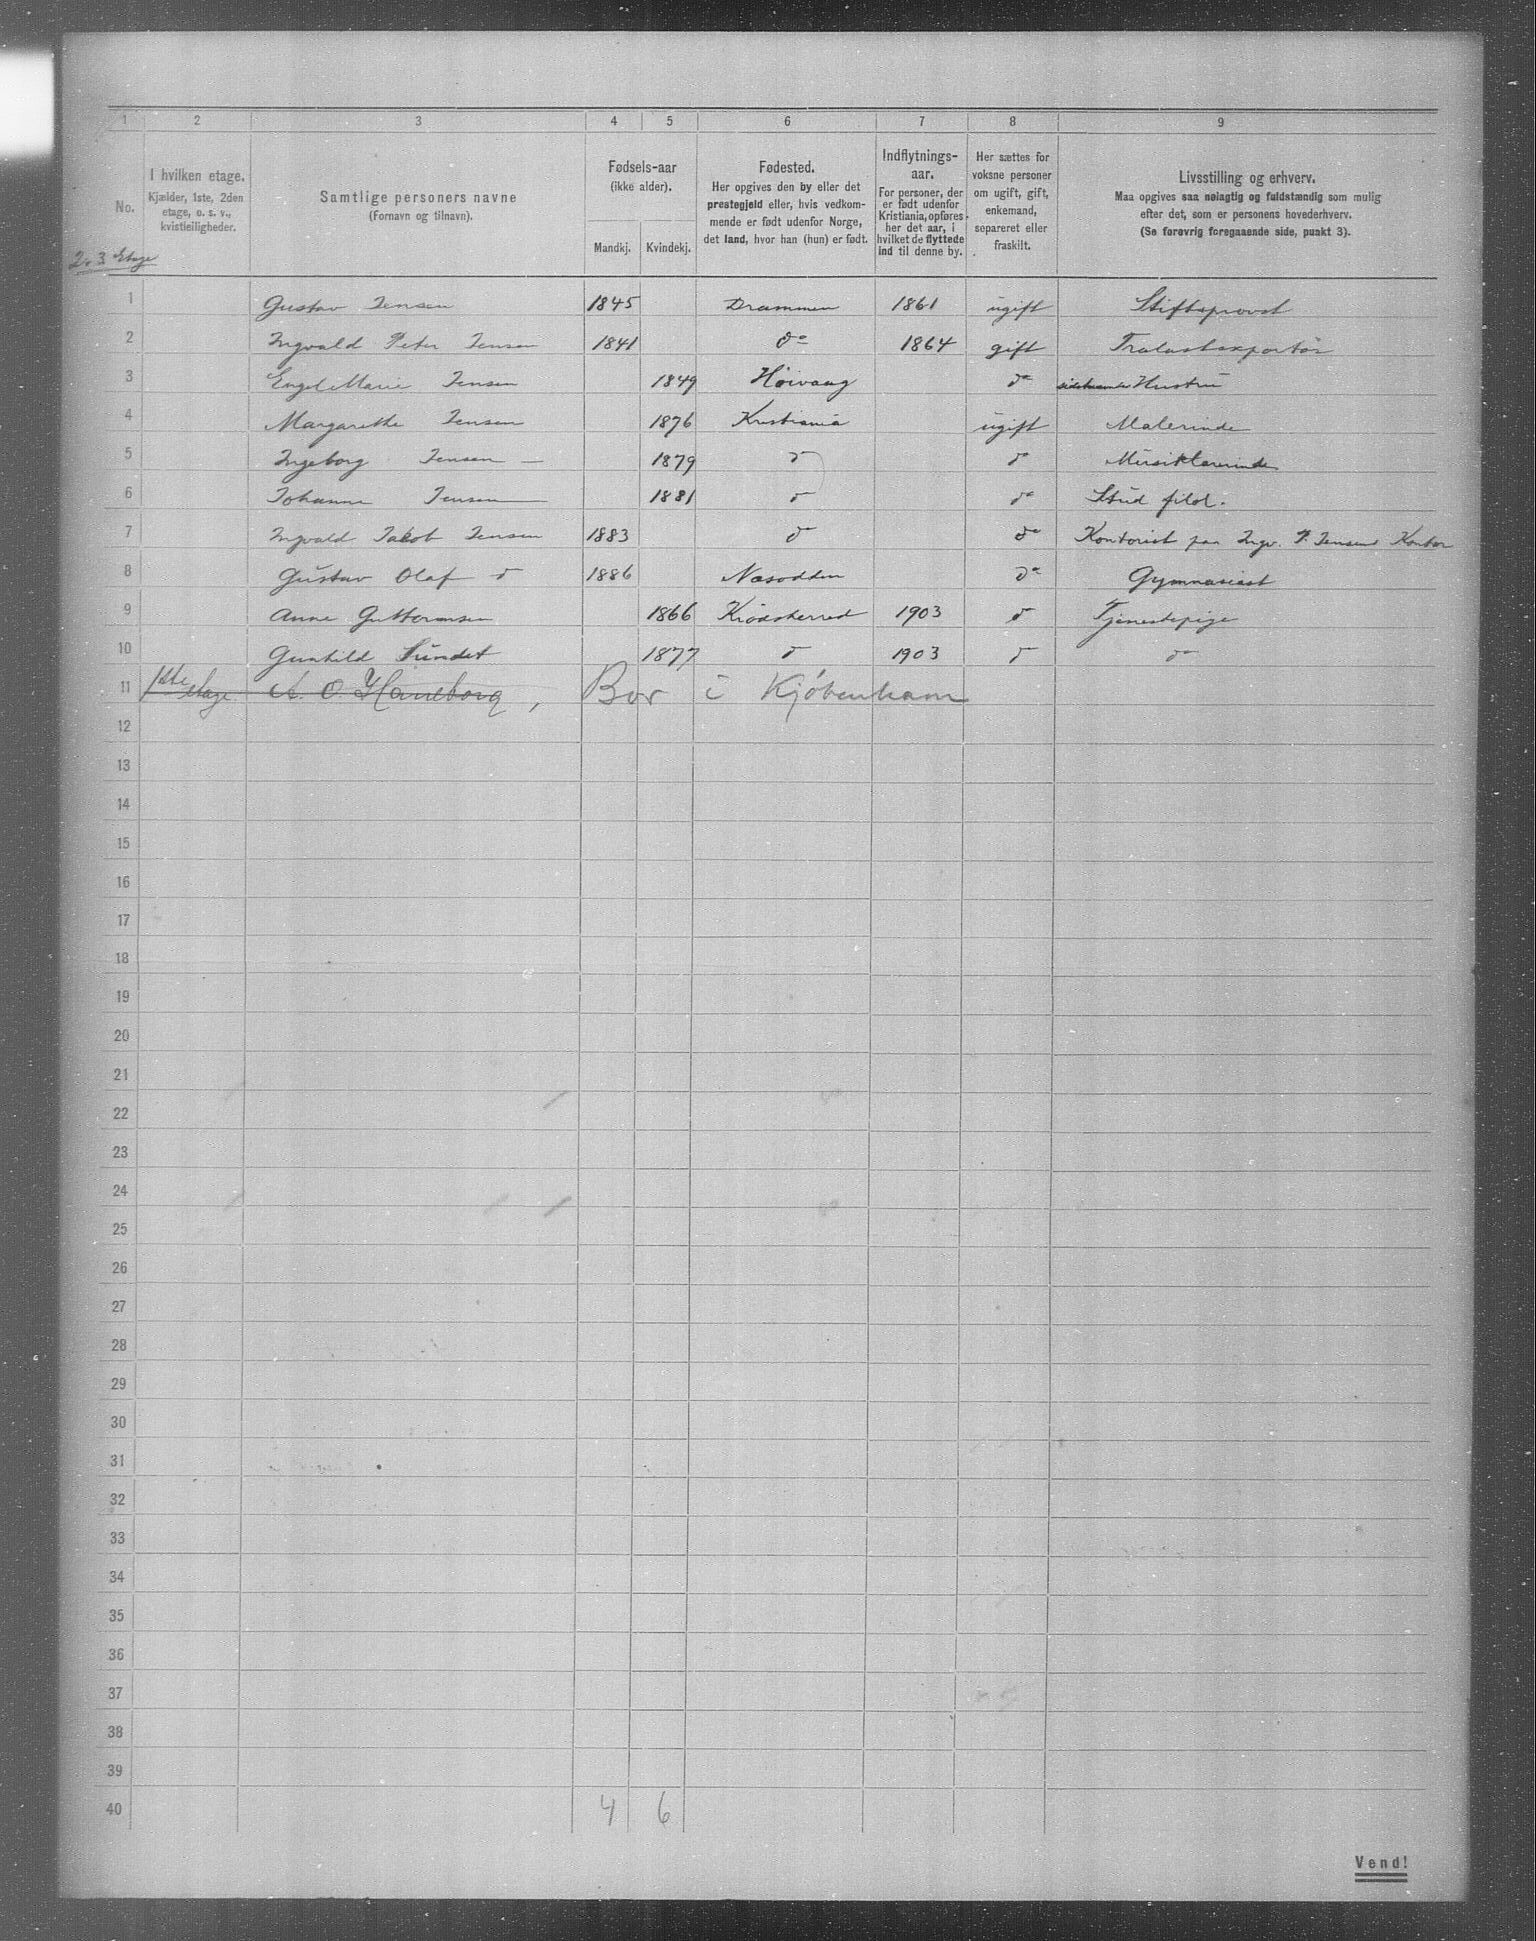 1 2 3 4 5 6 7 8 9
No.
I hvilken etage.
Kjælder, 1ste, 2den
etage, o. s. v.,
kvistleiligheder.
Samtlige personers navne
(Fornavn og tilnavn).
Fødsels-aar
(ikke alder).
Mandkj. Kvindekj.
Fødested.
Her opgives den by eller det
prestegjeld eller, hvis vedkom-
mende er født udenfor Norge,
det land, hvor han (hun) er født.
Indflytnings-
aar.
For personer, der
er født udenfor
Kristiania, opføres
her det aar, i
hvilket de flyttede
ind til denne by.
Her sættes for
voksne personer
om ugift, gift,
enkemand,
separeret eller
fraskilt.
Livsstilling og erhverv.
Maa opgives saa nøiagtig og fuldstændig som mulig
efter det, som er personens hovederhverv.
(Se forøvrig foregaaende side, punkt 3).
2 3 Etage
1 Gustav Jensen 1845 Drammen 1861 ugift Stiftsprovst
2 Ingvald Peter Jensen 1841 do 1864 gift Trælastexportør
3 Engel Marie Jensen 1849 Høivaag do Hustru
4 Margarethe Jensen 1876 Kristiania ugift Malerinde
5 Ingeborg Jensen 1879 do do Musiklærerinde
6 Johanne Jensen 1881 do do Stud filol.
7 Ingvald Jakob Jensen 1883 do do Kontorist paa Ingv. P. Jensens Kontor
8 Gustav Olaf do 1886 Næsodden do Gymnasiast
9 Anne Guttormsen 1866 Krødsherred 1903 do Tjenestepige
10 Gunhild Sundet 1877 do 1903 do do
11 1ste etage A. O. Haneborg, Bor i Kjøbenhavn
12
13
14
15
16
17
18
19
20
21
22
23
24
25
26
27
28
29
30
31
32
33
34
35
36
37
38
39
40 4 6
Vend!